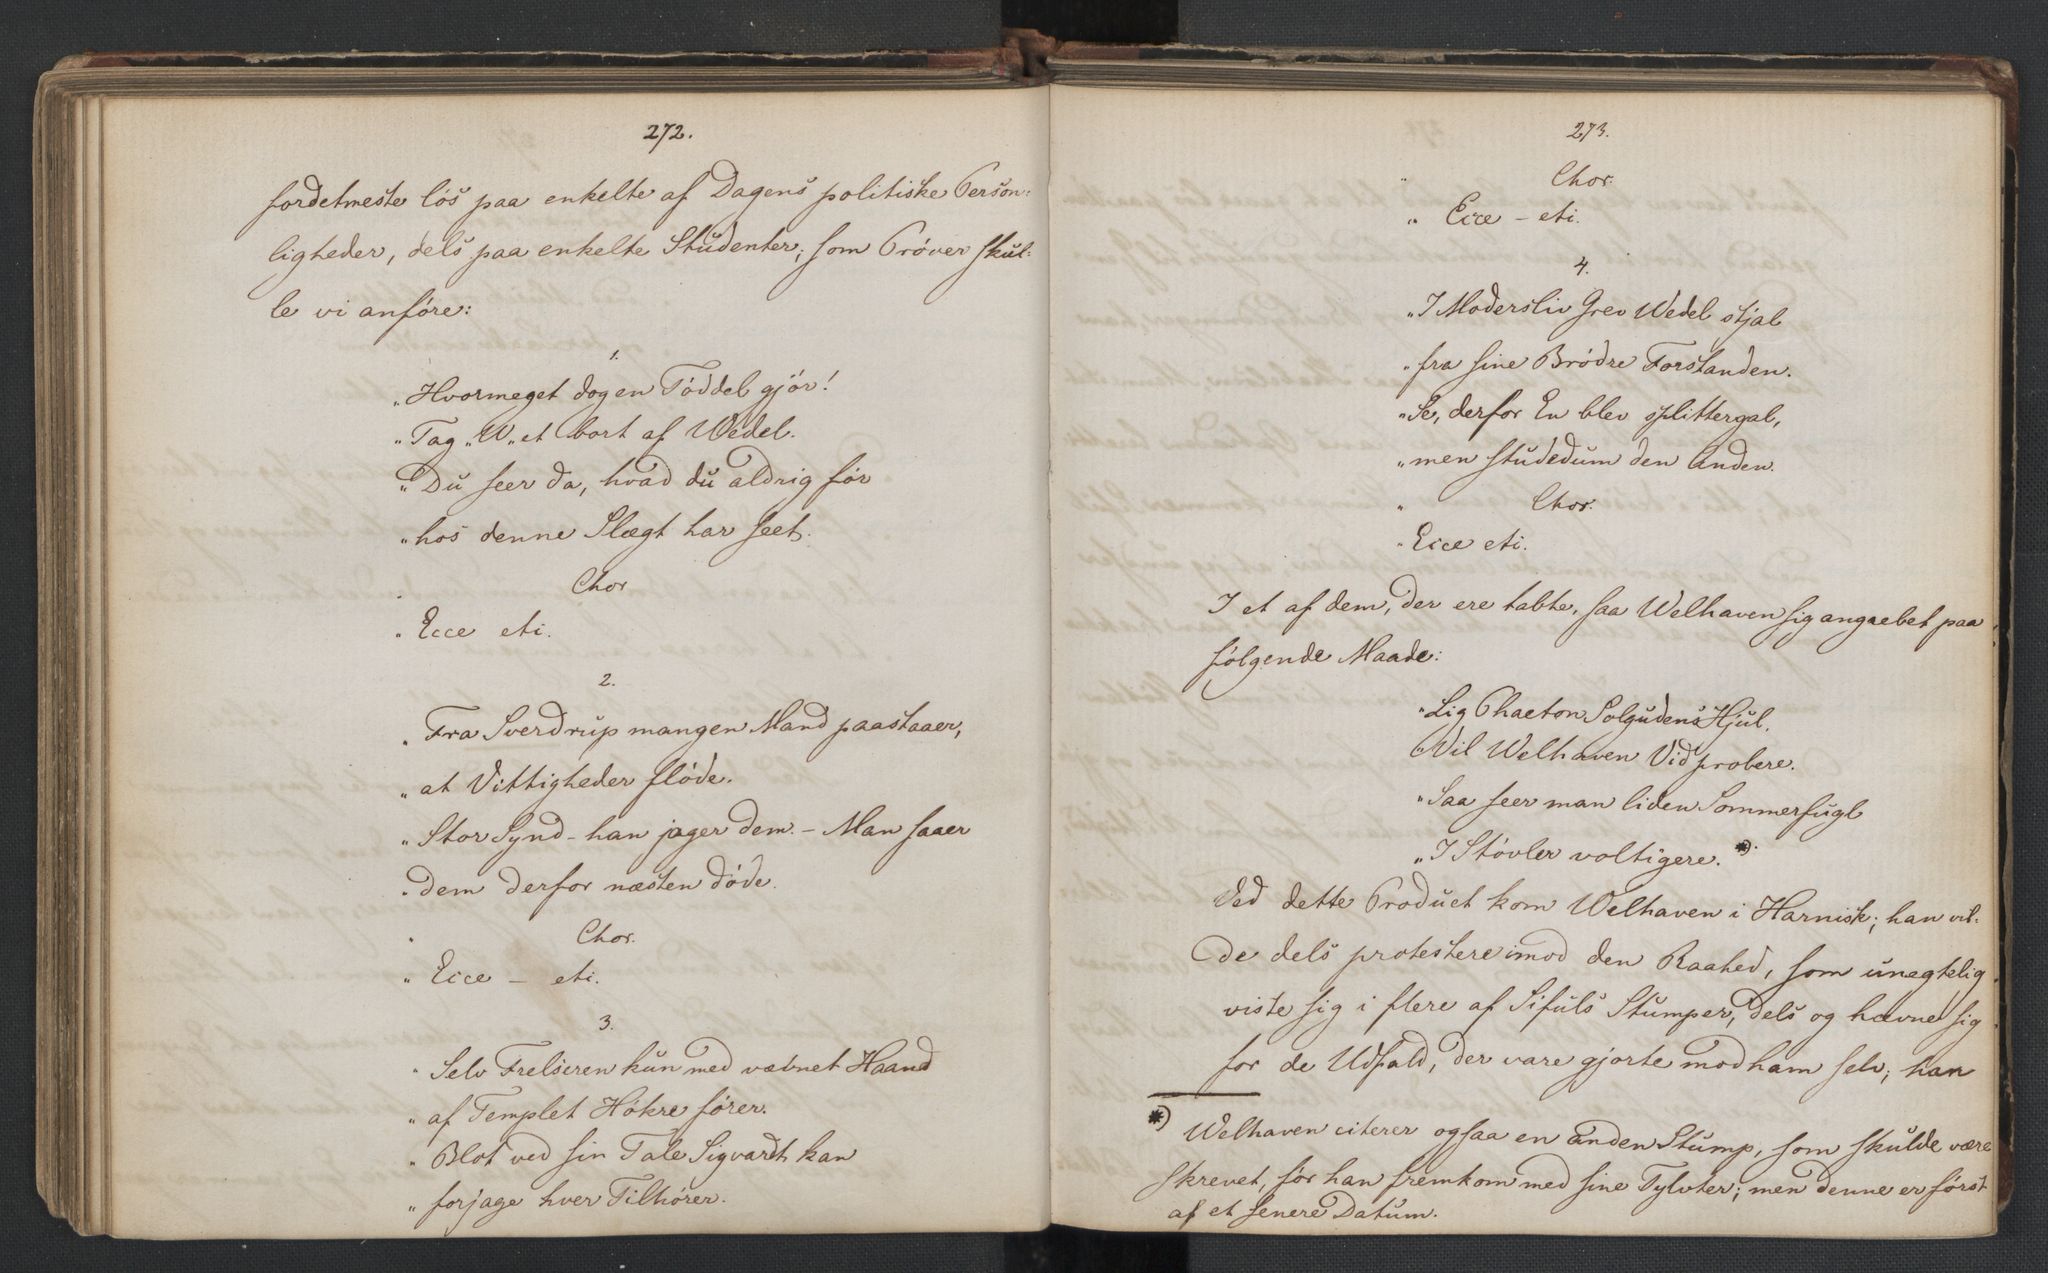 272.
fordetmeste løs paa enkelte af Dagens politiske Person:
ligheder, dels paa enkelte Studenter; som Prøver skul:
le vi anføre:
1.
„Hvormeget dog en Tøddel gjør!
„Tag „W„et bort af Wedel.
„Du seer da, hvad du aldrig før
„hos denne Slægt har seet.
„ Chor
„Ecce etc.
2.
„Fra Sverdrup mangen Mand paastaaer,
„at Vittigheder fløde.
„Stor Synd – han jager dem. – Man faaer
„dem derfor næsten døde.
„ Chor.
„Ecce – etc.
3.
„Selv Frelseren kun med væbnet Haand
„af Templet Høkre fører.
„Blot ved sin Tale Sigvardt kan
„forjage hver Tilhører.
273.
„ Chor.
„Ecce – etc.
4.
„I Modersliv Grev Wedel stjal
„fra sine Brødre Forstanden.
„Se, derfor En blev splittergal,
„men studedum den Anden.
„ Chor.
„Ecce etc.
I et af dem, der ere tabte, saa Welhaven sig angrebet paa
følgende Maade:
„Lig Phaeton Solgudens Hjul.
„Vil Welhaven Vid probere.
„Saa seer man liden Sommerfugl
„I Støvler voltigere. *).
Ved dette Product kom Welhaven i Harnisk; han vil:
de dels protestere imod den Raahed, som unegtelig
viste sig i flere af Sifuls Stumper, dels og hævne sig
for de Udfald, der vare gjorte mod ham selv; han
*) Welhaven citerer ogsaa en anden Stump, som skulde være
skrevet, før han fremkom med sine Tylvter; men denne er først
af et senere Datum.